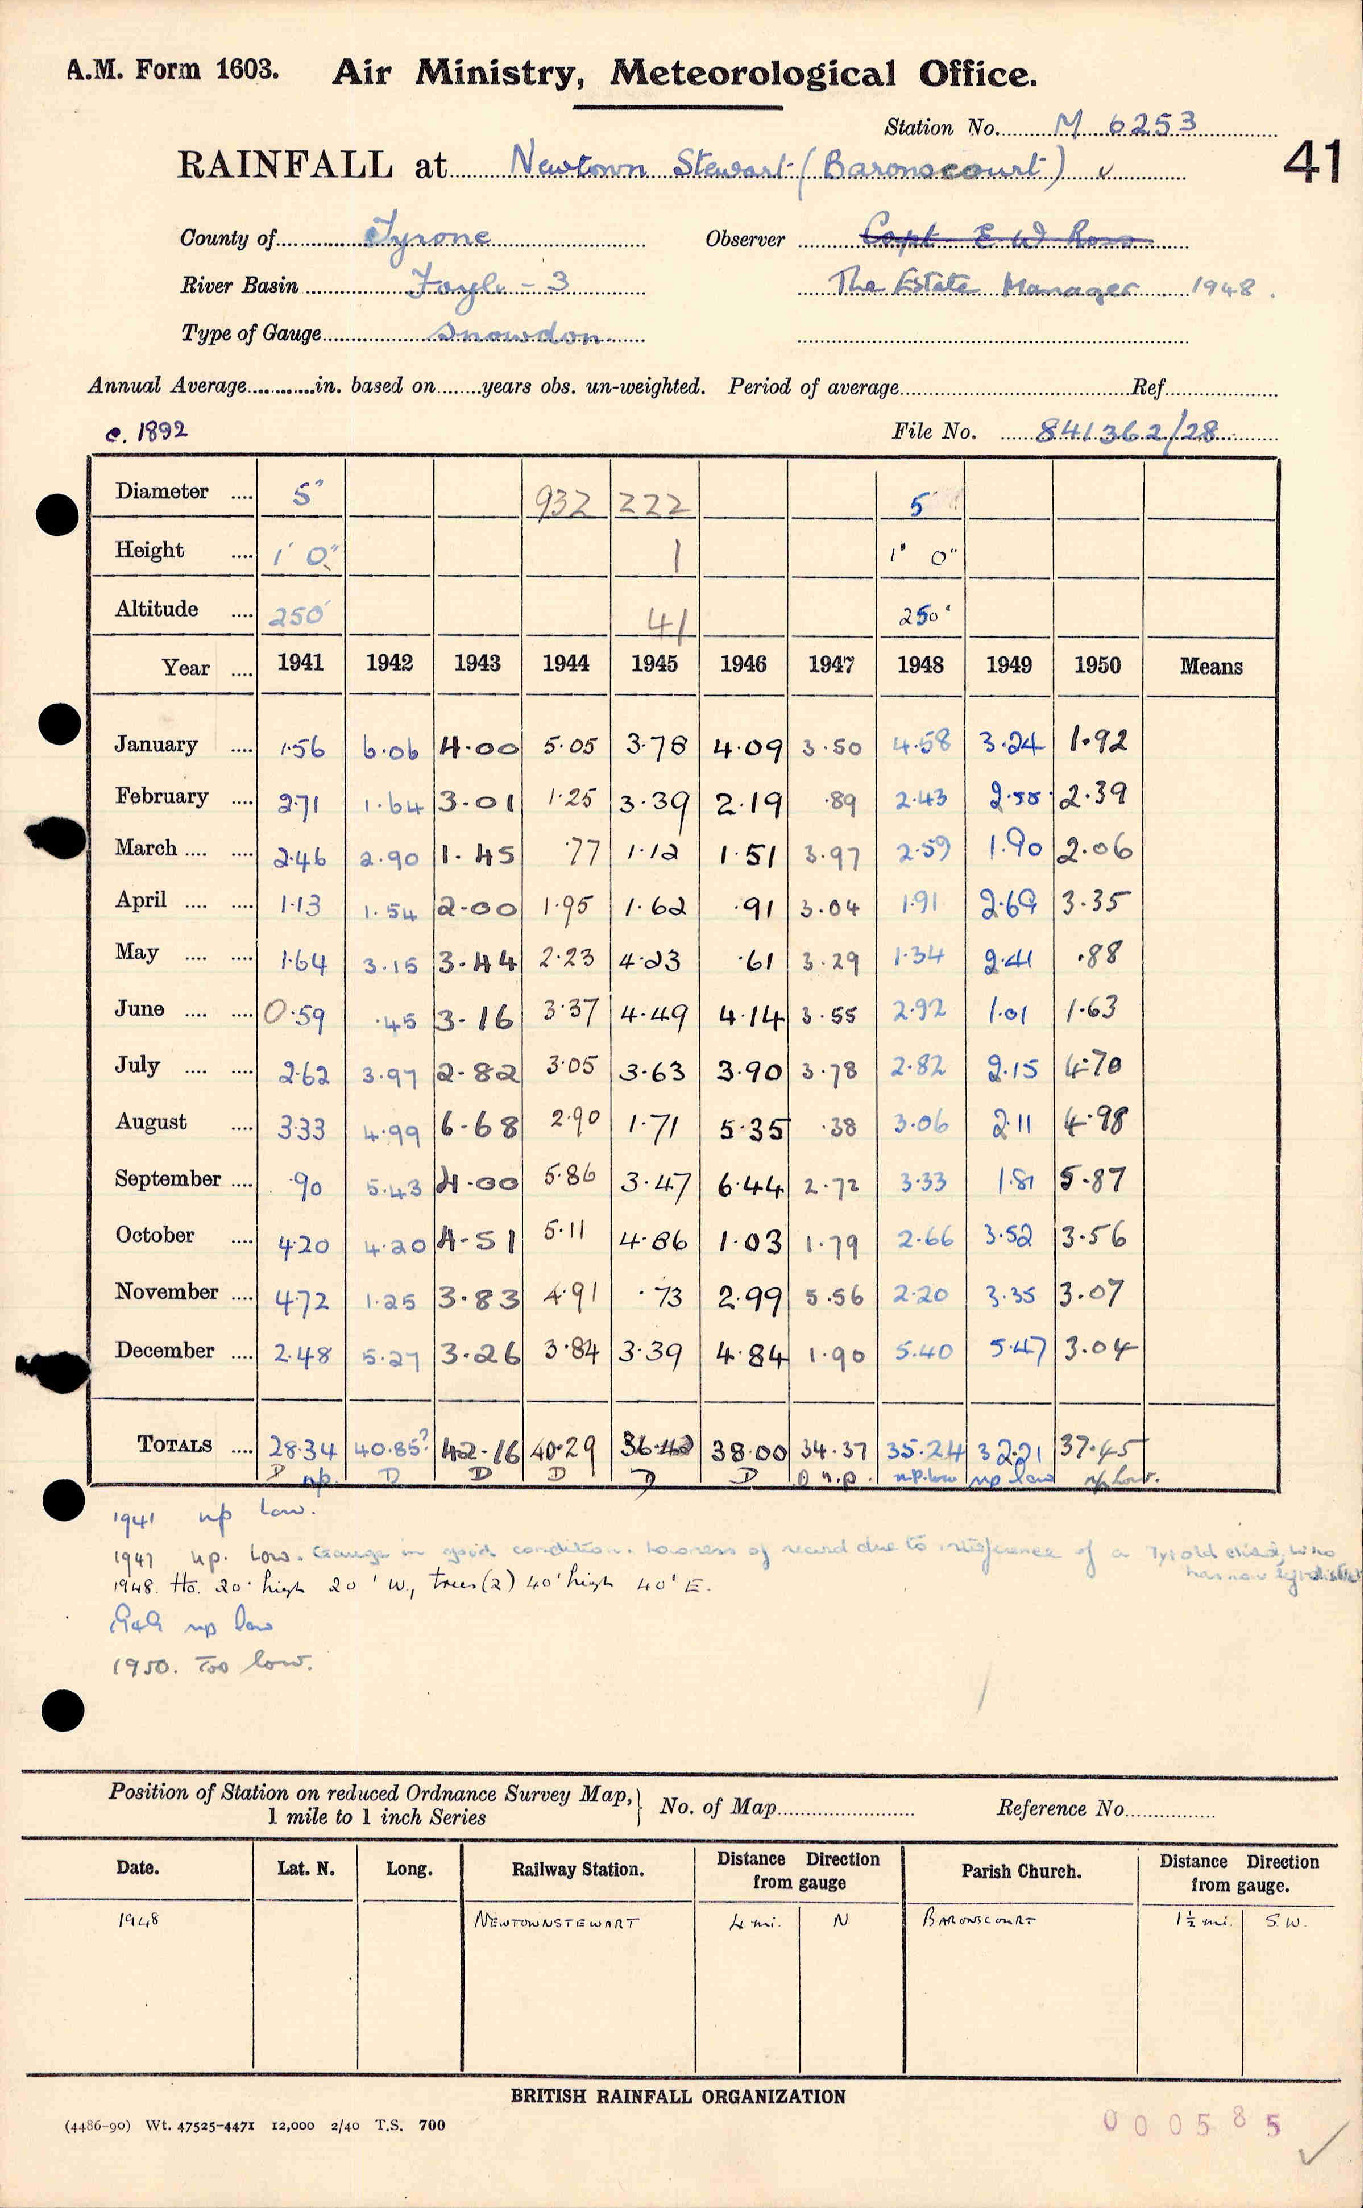 A.M. Form 1603. Air Ministry, Meteorological Office.
Station No. M 6253
41
RAINFALL at Newtown Stewart (Baronscourt) v
County of Tyrone Observer Capt E W Ross
River Basin Foyle - 3 The Estate Manager 1948.
Type of Gauge Snowdon
Annual Average in. based on years obs. un-weighted. Period of average Ref
c. 1892 File No. 841362/28
Diameter 5" 932 222 5
Height 1' 0" 1 1' 0"
Altitude 250' 41 250'
Year 1941 1942 1943 1944 1945 1946 1947 1948 1949 1950 Means
January 1.56 6.06 4.00 5.05 3.78 4.09 3.50 4.58 3.24 1.92
February 2.71 1.64 3.01 1.25 3.39 2.19 .89 2.43 2.55 2.39
March 2.46 2.90 1.45 .77 1.12 1.51 3.97 2.59 1.90 2.06
April 1.13 1.54 2.00 1.95 1.62 .91 3.04 1.91 2.69 3.35
May 1.64 3.15 3.44 2.23 4.23 .61 3.29 1.34 2.41 .88
June 0.59 .45 3.16 3.37 4.49 4.14 3.55 2.92 1.01 1.63
July 2.62 3.97 2.82 3.05 3.63 3.90 3.78 2.82 2.15 4.70
August 3.33 4.99 6.68 2.90 1.71 5.35 .38 3.06 2.11 4.98
September .90 5.43 4.00 5.86 3.47 6.44 2.72 3.33 1.81 5.87
October 4.20 4.20 4.51 5.11 4.86 1.03 1.79 2.66 3.52 3.56
November 4.72 1.25 3.83 4.91 .73 2.99 5.56 2.20 3.35 3.07
December 2.48 5.27 3.26 3.84 3.39 4.84 1.90 5.40 5.47 3.04
TOTALS 28.34 40.85? 42.16 40.29 36.42 38.00 34.37 35.24 32.21 37.45
D np. D D D D D D n.p. n.p. low np low np low.
1941 np low.
1947 n.p. Low. Gauge in good condition. Lowness of record due to interference of a 7 yr old child, who
has now
1948. Ho. 20' high 20' W., trees (2) 40' high 40' E.
1949 np low
1950. Too low.
Position of Station on reduced Ordnance Survey Map,
1 mile to 1 inch Series
No. of Map Reference No.
Date. Lat. N. Long. Railway Station. Distance Direction from gauge Parish Church. Distance Direction from gauge.
1948 NEWTOWNSTEWART 4 mi. N BARONSCOURT 1½ mi. S.W.
BRITISH RAINFALL ORGANIZATION
(4486-90) Wt. 47525-4471 12,000 2/40 T.S. 700
000585